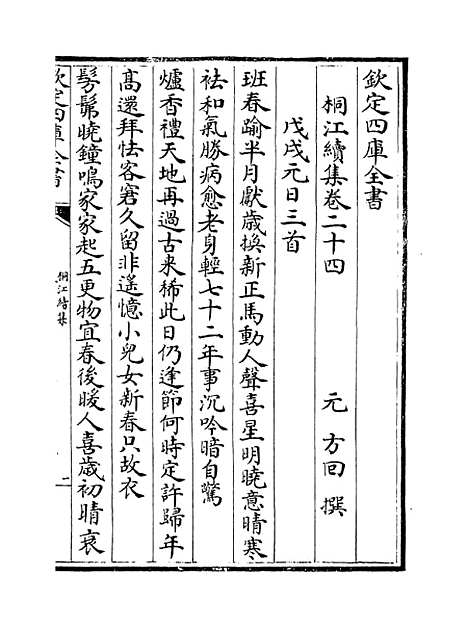 欽定四庫全書
桐江續集卷二十四
元 方回 撰
戊戌元日三首
班春踰半月獻歲換新正馬動人聲喜星明曉意晴寒
袪和氣勝病愈老身輕七十二年事沉吟暗自驚
爐香禮天地再過古来稀此日仍逢節何時定許歸年
高還拜怯客窘久留非遥憶小兒女新春只故衣
髣髴曉鐘鳴家家起五更物宜春後暖人喜歲初晴衰
欽定四庫全書
桐江續集
一